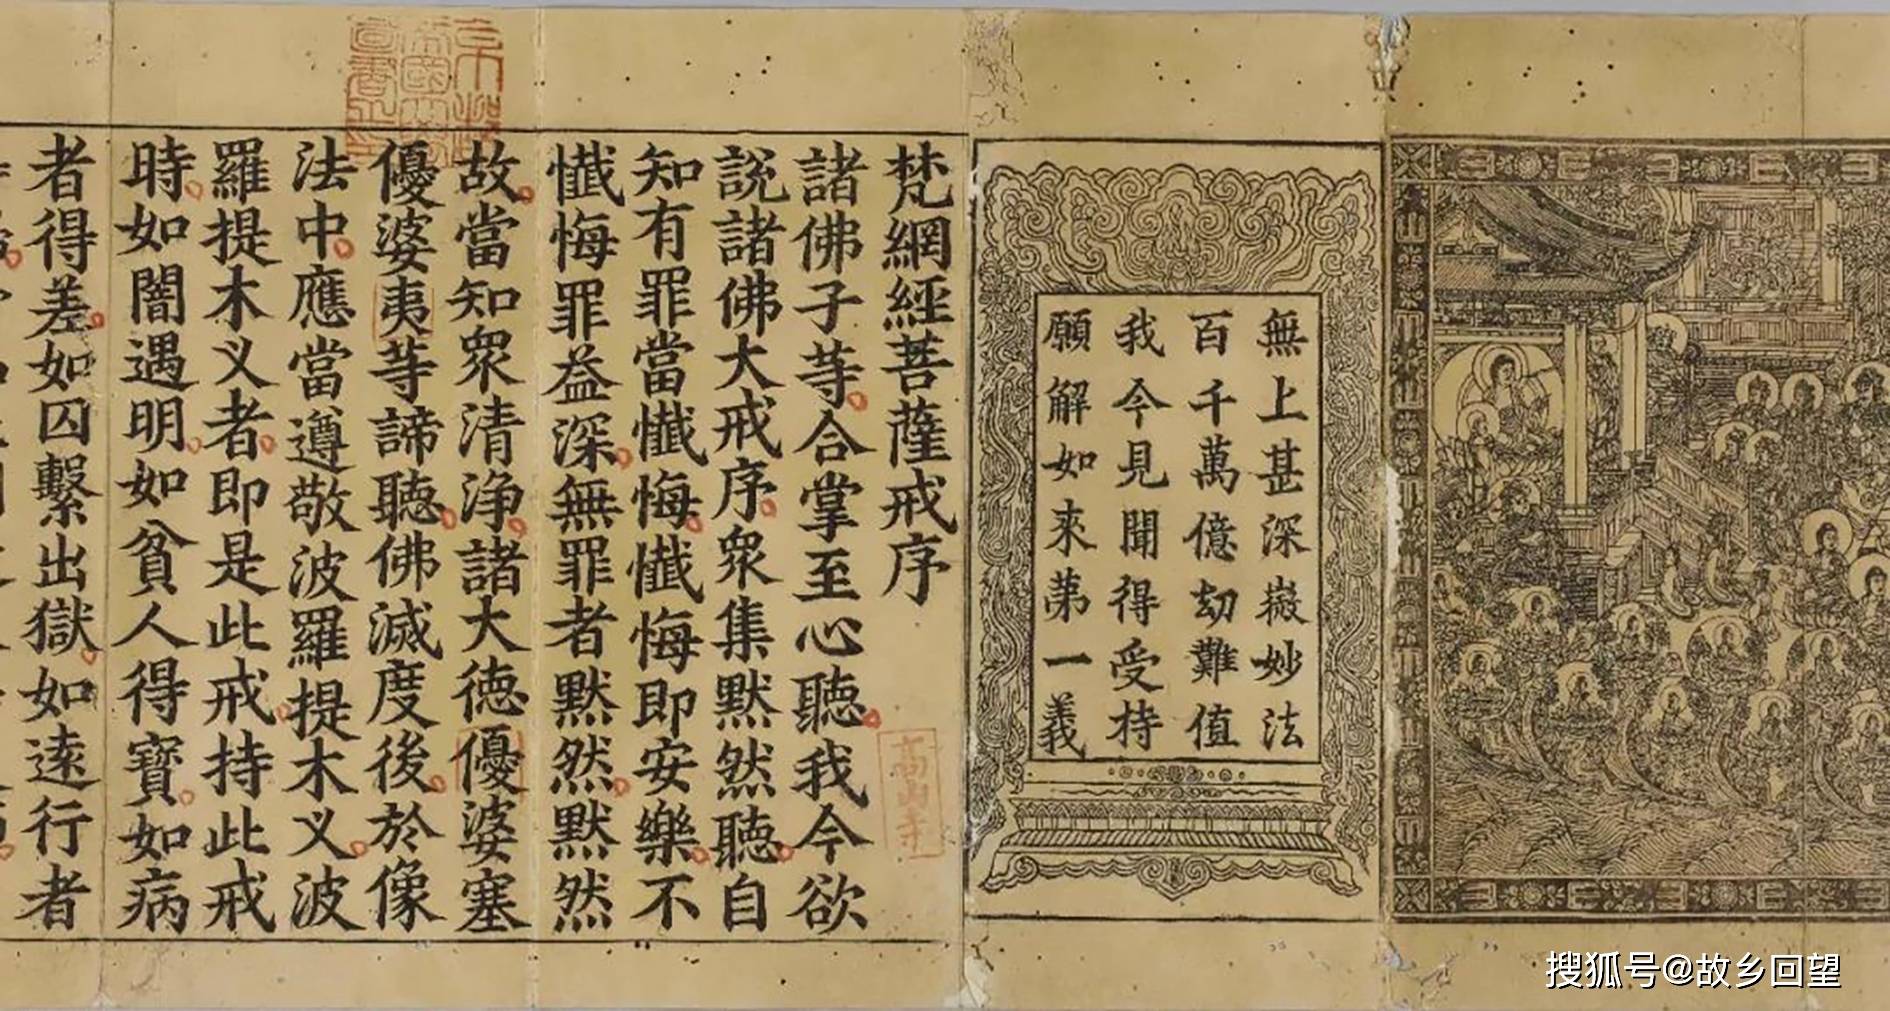 無上甚深㣲妙法
百千萬億劫難值
我今見聞得受持
願解如來苐一義
梵網經菩薩戒序
高山寺
諸佛子等。合掌至心聽。我今欲
說諸佛大戒序。衆集默然聽。自
知有罪當懺悔。懺悔即安樂。不
懺悔罪益深。無罪者默然。默然
故。當知衆清浄。諸大徳優婆塞
優婆夷等諦聽。佛滅度後。於像
法中。應當遵敬波羅提木义。波
羅提木义者。即是此戒。持此戒
時。如闇遇明。如貧人得寳。如病
者得差。如囚繫出獄。如逺行者
搜狐号@故乡回望